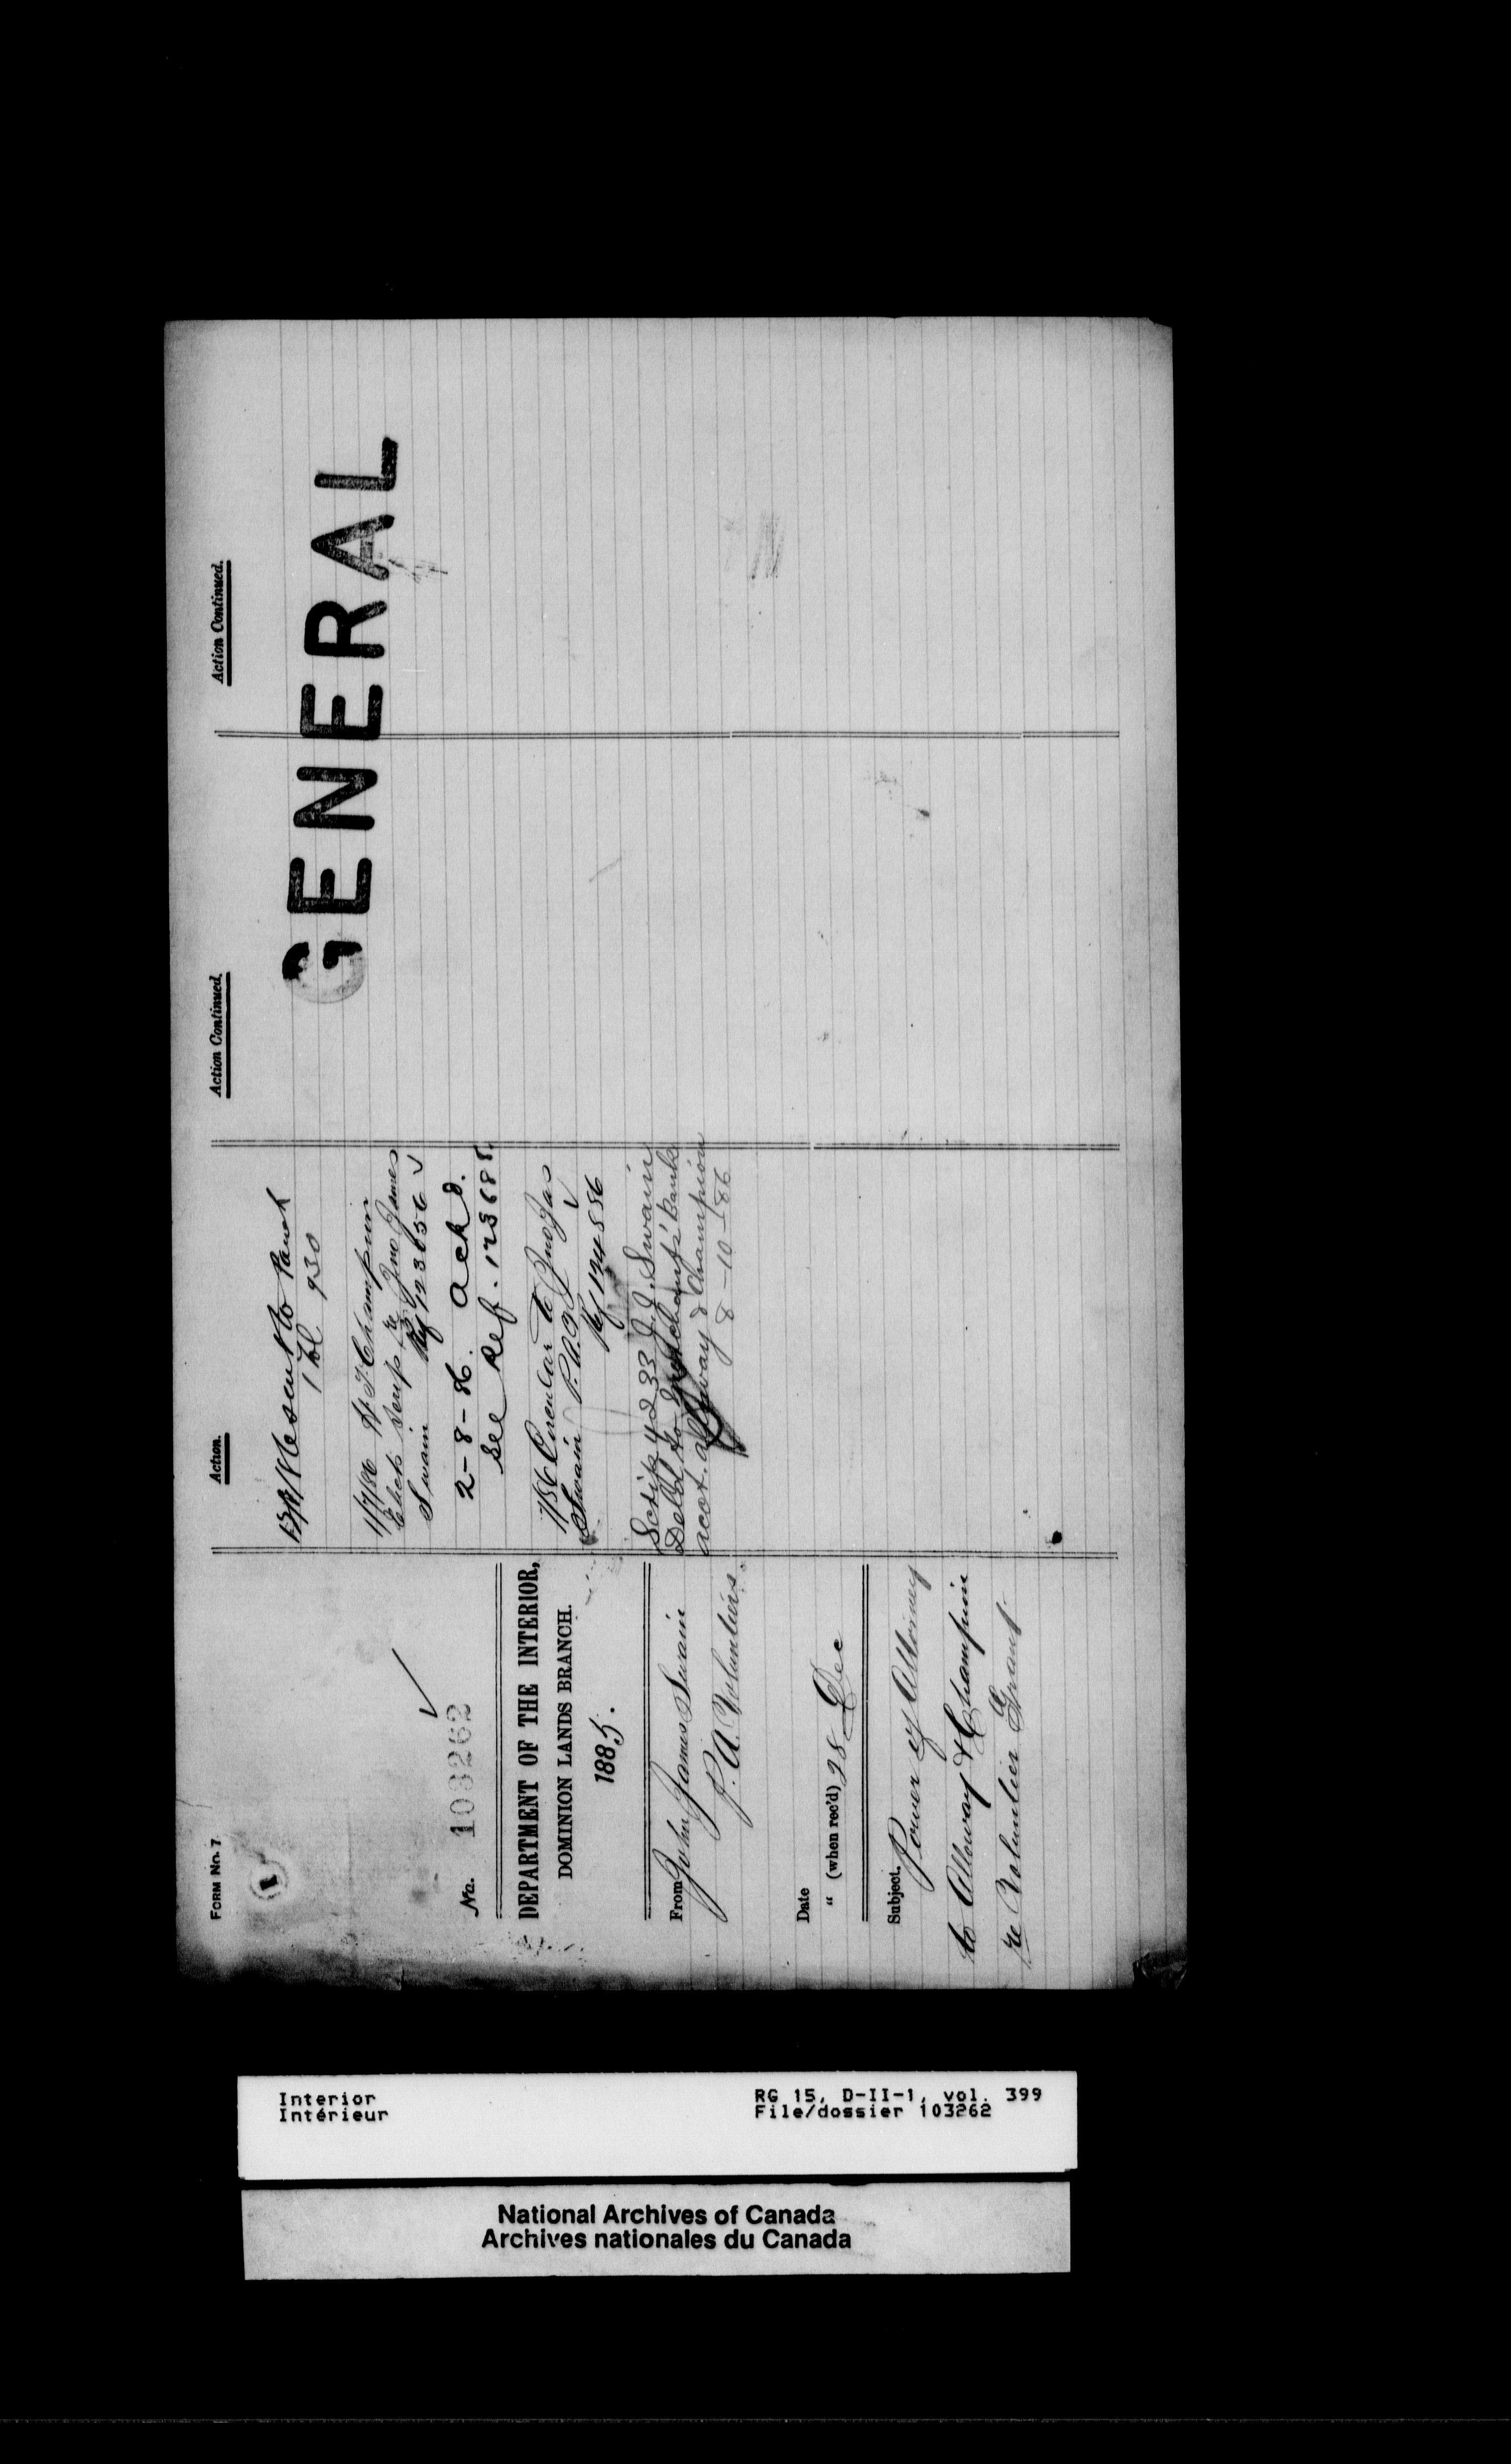 FORM No. 7
1
No. 103262
DEPARTMENT OF THE INTERIOR,
DOMINION LANDS BRANCH.
1885.
From John James Swain
P. A. Volunteers.
Date
" (when rec'd) 28 Dec
Subject. Power of Attorney
to Alloway & Champion
re Volunteer Grant
Action.
930
1/7/86 W. F. Champion
Swain Ref 123656
2-8-86. Ackd.
See Ref.
7/86 Circular to Jno Jas
Swain P.A.
Ref 124556
Scrip 4233 J.J. Swain
Deld to Merchants' Bank
acct. Alloway & Champion
8-10-86
Action Continued.
Action Continued.
GENERAL
Interior
Intérieur
RG 15, D-II-1, vol. 399
File/dossier 103262
National Archives of Canada
Archives nationales du Canada